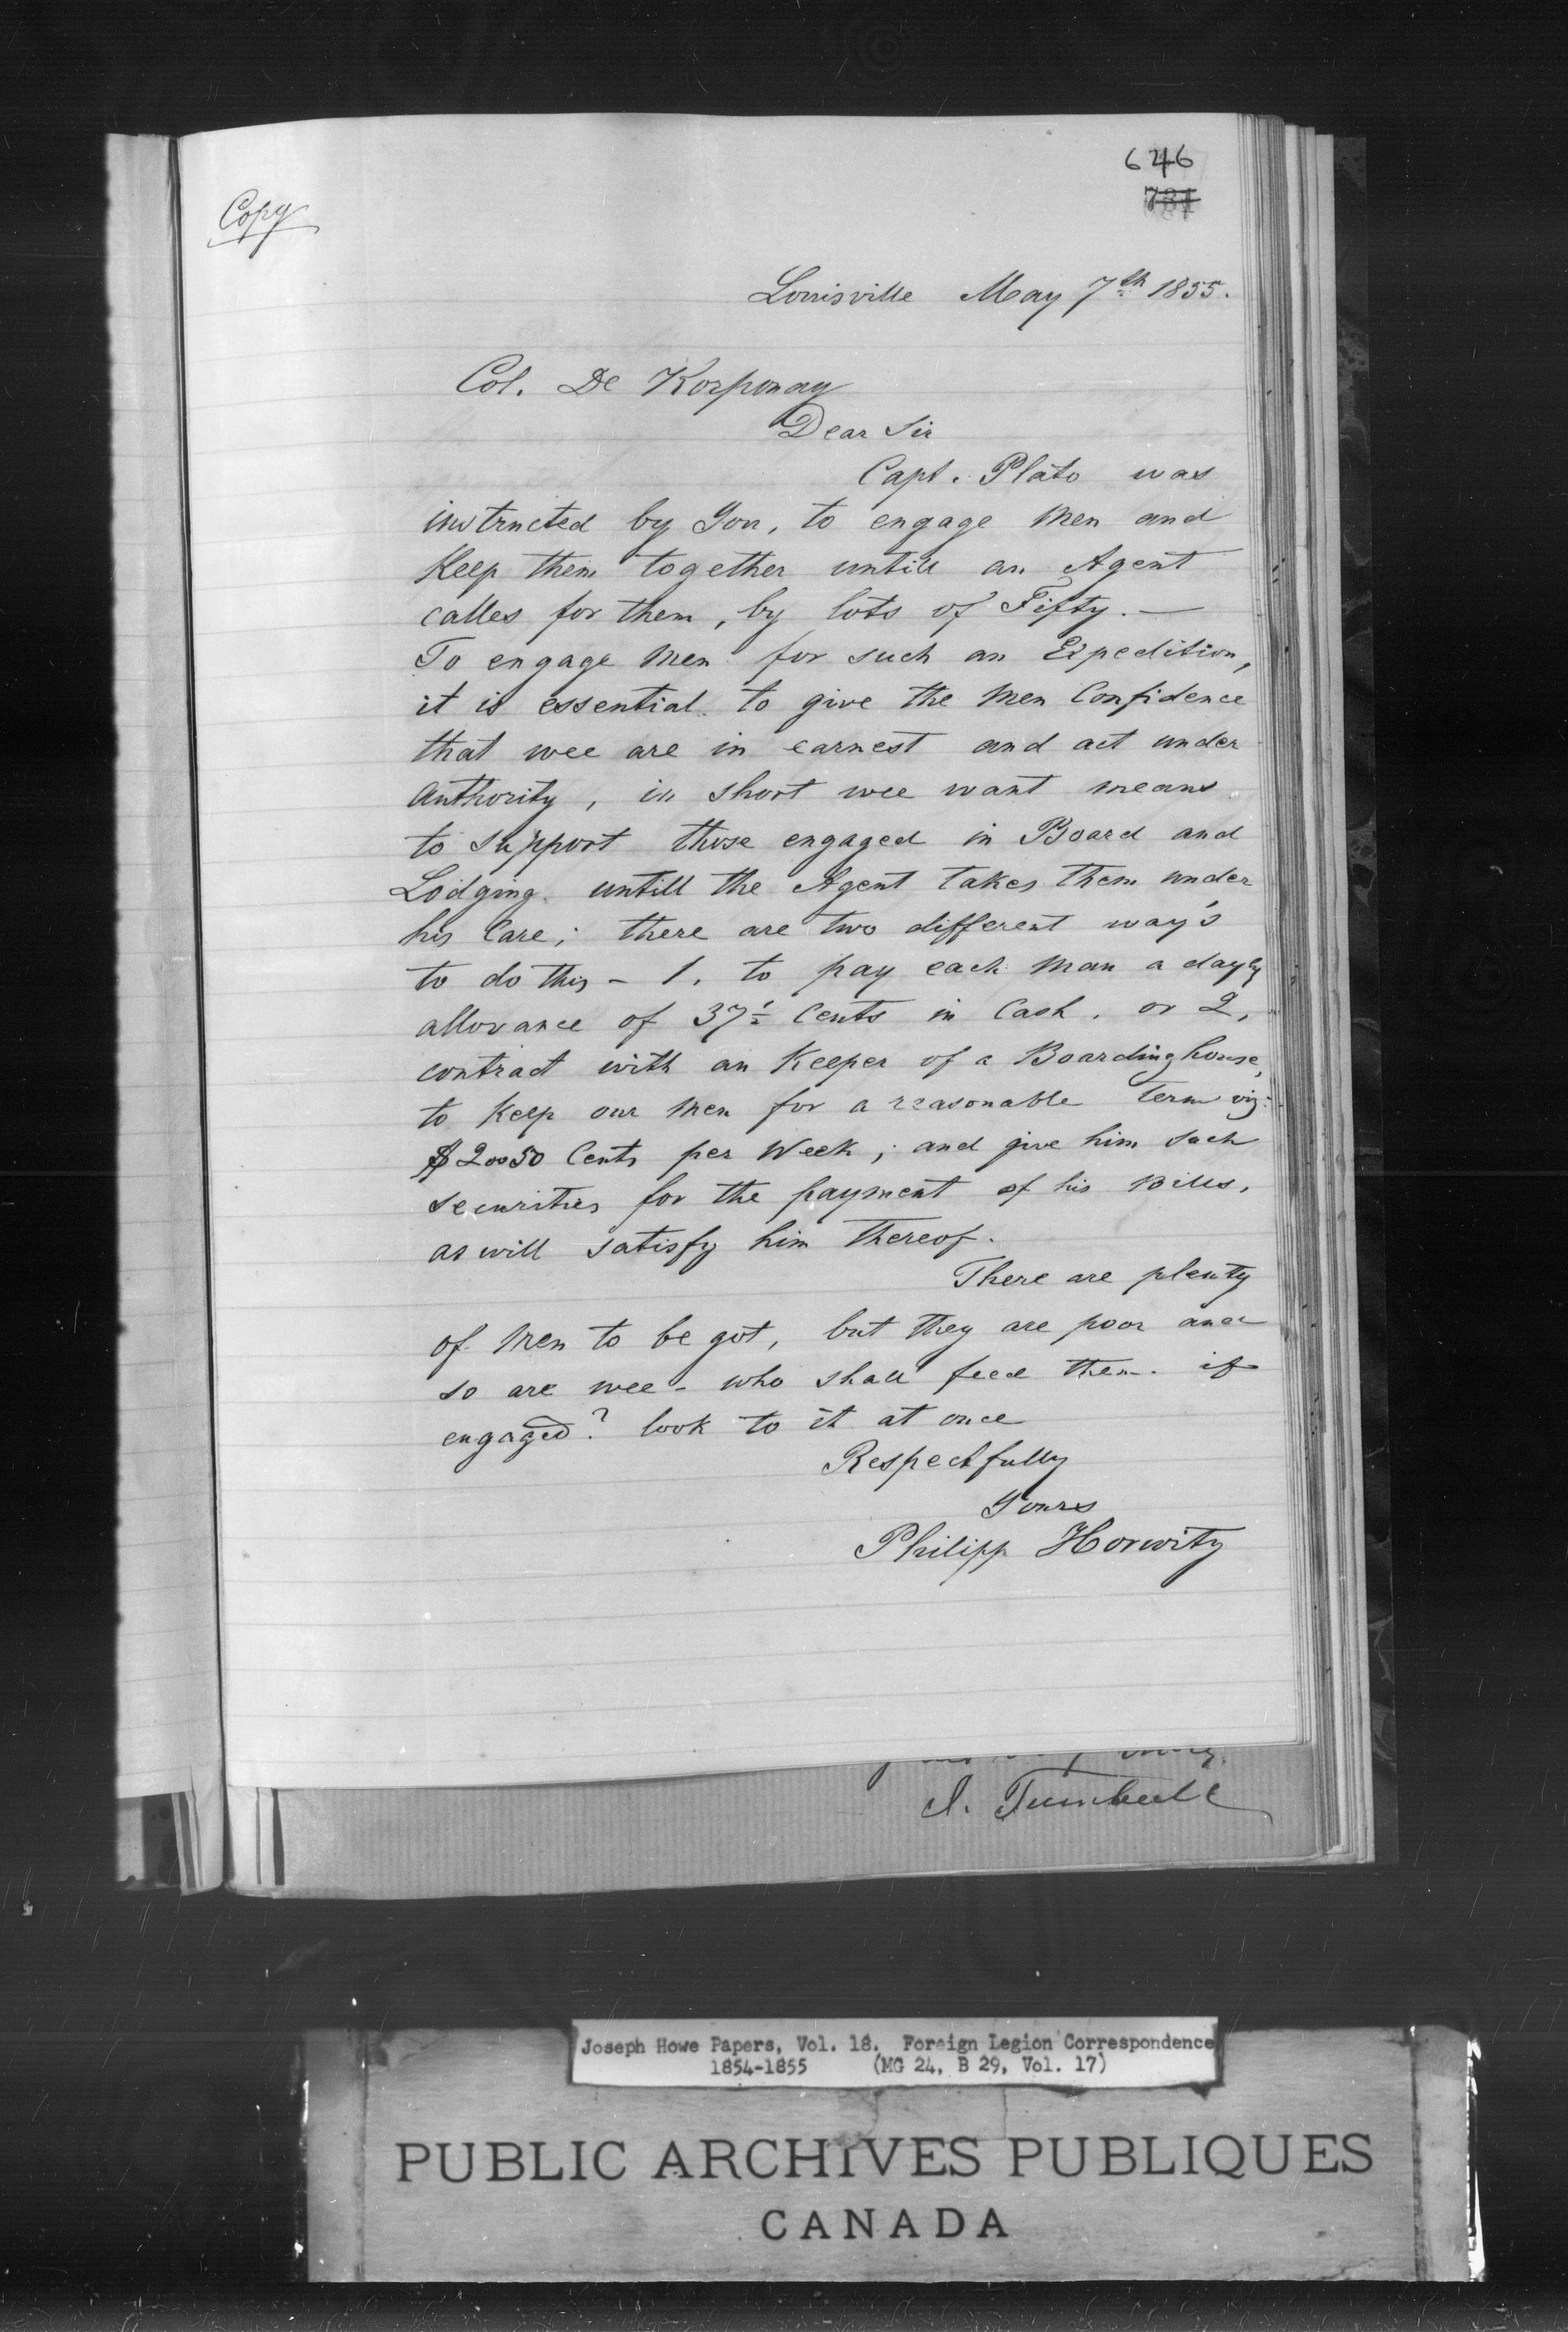 646
781
Copy
Louisville May 7th 1855.
Col. De Korponay
Dear Sir
Capt. Plato was
instructed by You, to engage Men and
Keep them together untill an Agent
calles for them, by lots of Fifty. —
To engage Men for such an Expedition,
it is essential to give the Men Confidence
that wee are in earnest and act under
Authority, in short wee want means
to support those engaged in Board and
Lodging untill the Agent takes them under
his Care; there are two different way's
to do this - 1. to pay each Man a dayly
allowance of 37½ Cents in Cash. or 2,
contract with an Keeper of a Boarding house,
to Keep our Men for a reasonable Term viz:
$2oo50 Cents per Week; and give him such
securities for the payment of his Bills,
as will satisfy him thereof.
There are plenty
of Men to be got, but they are poor and
so are wee - who shall feed them if
engaged? look to it at once
Respectfully
Yours
Philipp Horwitz
J. Turnbull
Joseph Howe Papers, Vol. 18. Foreign Legion Correspondence
1854-1855 (MG 24, B 29, Vol. 17)
PUBLIC ARCHIVES PUBLIQUES
CANADA